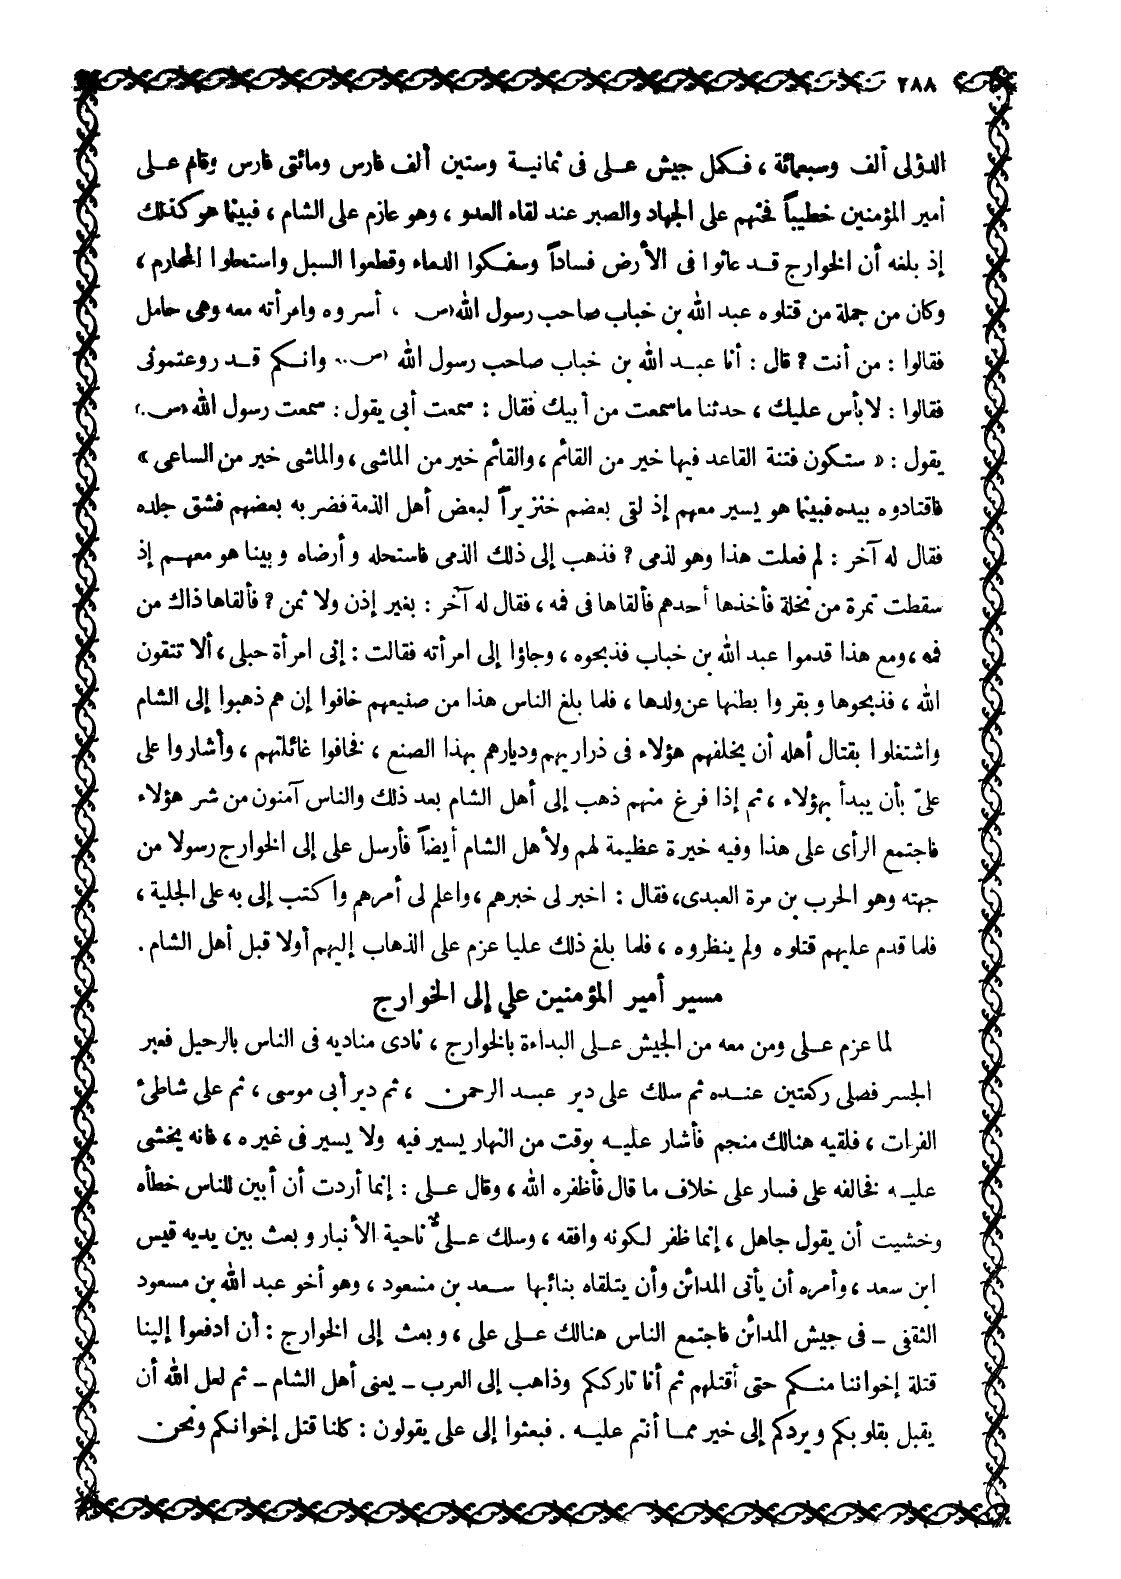 ٢٨٨
الدؤلى ألف وسبعمائة ، فكمل جيش على فى ثمانية وستين ألف فارس ومائتى فارس وقام على
أمير المؤمنين خطيباً فحثهم على الجهاد والصبر عند لقاء العدو ، وهو عازم على الشام ، فبينما هو كذلك
إذ بلغه أن الخوارج قد عاثوا فى الأرض فساداً وسفكوا الدماء وقطعوا السبل واستحلوا المحارم ،
وكان من جملة من قتلوه عبد الله بن خباب صاحب رسول الله (ص) ، أسروه وامرأته معه وهى حامل
فقالوا : من أنت ؟ قال : أنا عبد الله بن خباب صاحب رسول الله (ص) وانكم قد روعتمونى
فقالوا : لا بأس عليك ، حدثنا ما سمعت من أبيك فقال : سمعت أبى يقول : سمعت رسول الله (ص)
يقول : « ستكون فتنة القاعد فيها خير من القائم ، والقائم خير من الماشى ، والماشى خير من الساعى »
فاقتادوه بيده فبينما هو يسير معهم إذ لقى بعضهم خنزيراً لبعض أهل الذمة فضربه بعضهم فشق جلده
فقال له آخر : لم فعلت هذا وهو لذمى ؟ فذهب إلى ذلك الذمى فاستحله وأرضاه وبينا هو معهم إذ
سقطت تمرة من نخلة فأخذها أحدهم فألقاها فى فمه ، فقال له آخر : بغير إذن ولا ثمن ؟ فألقاها ذاك من
فمه ، ومع هذا قدموا عبد الله بن خباب فذبحوه ، وجاؤا إلى امرأته فقالت : إنى امرأة حبلى ، ألا تتقون
الله ، فذبحوها وبقروا بطنها عن ولدها ، فلما بلغ الناس هذا من صنيعهم خافوا إن هم ذهبوا إلى الشام
واشتغلوا بقتال أهله أن يخلفهم هؤلاء فى ذراريهم وديارهم بهذا الصنع ، فخافوا غائلتهم ، وأشاروا على
علىّ بأن يبدأ بهؤلاء ، ثم إذا فرغ منهم ذهب إلى أهل الشام بعد ذلك والناس آمنون من شر هؤلاء
فاجتمع الرأى على هذا وفيه خيرة عظيمة لهم ولأهل الشام أيضاً فأرسل على إلى الخوارج رسولا من
جهته وهو الحرب بن مرة العبدى ، فقال : اخبر لى خبرهم ، واعلم لى أمرهم واكتب إلى به على الجلية ،
فلما قدم عليهم قتلوه ولم ينظروه ، فلما بلغ ذلك عليا عزم على الذهاب إليهم أولا قبل أهل الشام .
مسير أمير المؤمنين علي إلى الخوارج
لما عزم على ومن معه من الجيش على البداءة بالخوارج ، نادى مناديه فى الناس بالرحيل فعبر
الجسر فصلى ركعتين عنده ثم سلك على دير عبد الرحمن ، ثم دير أبى موسى ، ثم على شاطئ
الفرات ، فلقيه هنالك منجم فأشار عليه بوقت من النهار يسير فيه ولا يسير فى غيره ، فانه يخشى
عليه فخالفه على فسار على خلاف ما قال فأظفره الله ، وقال على : إنما أردت أن أبين للناس خطأه
وخشيت أن يقول جاهل ، إنما ظفر لكونه وافقه ، وسلك على ناحية الأنبار وبعث بين يديه قيس
ابن سعد ، وأمره أن يأتى المدائن وأن يتلقاه بنائبها سعد بن مسعود ، وهو أخو عبد الله بن مسعود
الثقفى - فى جيش المدائن فاجتمع الناس هنالك على على ، وبعث إلى الخوارج : أن ادفعوا إلينا
قتلة إخواننا منكم حتى أقتلهم ثم أنا تارككم وذاهب إلى العرب - يعنى أهل الشام - ثم لعل الله أن
يقبل بقلوبكم ويردكم إلى خير مما أنتم عليه . فبعثوا إلى على يقولون : كلنا قتل إخوانكم ونحن